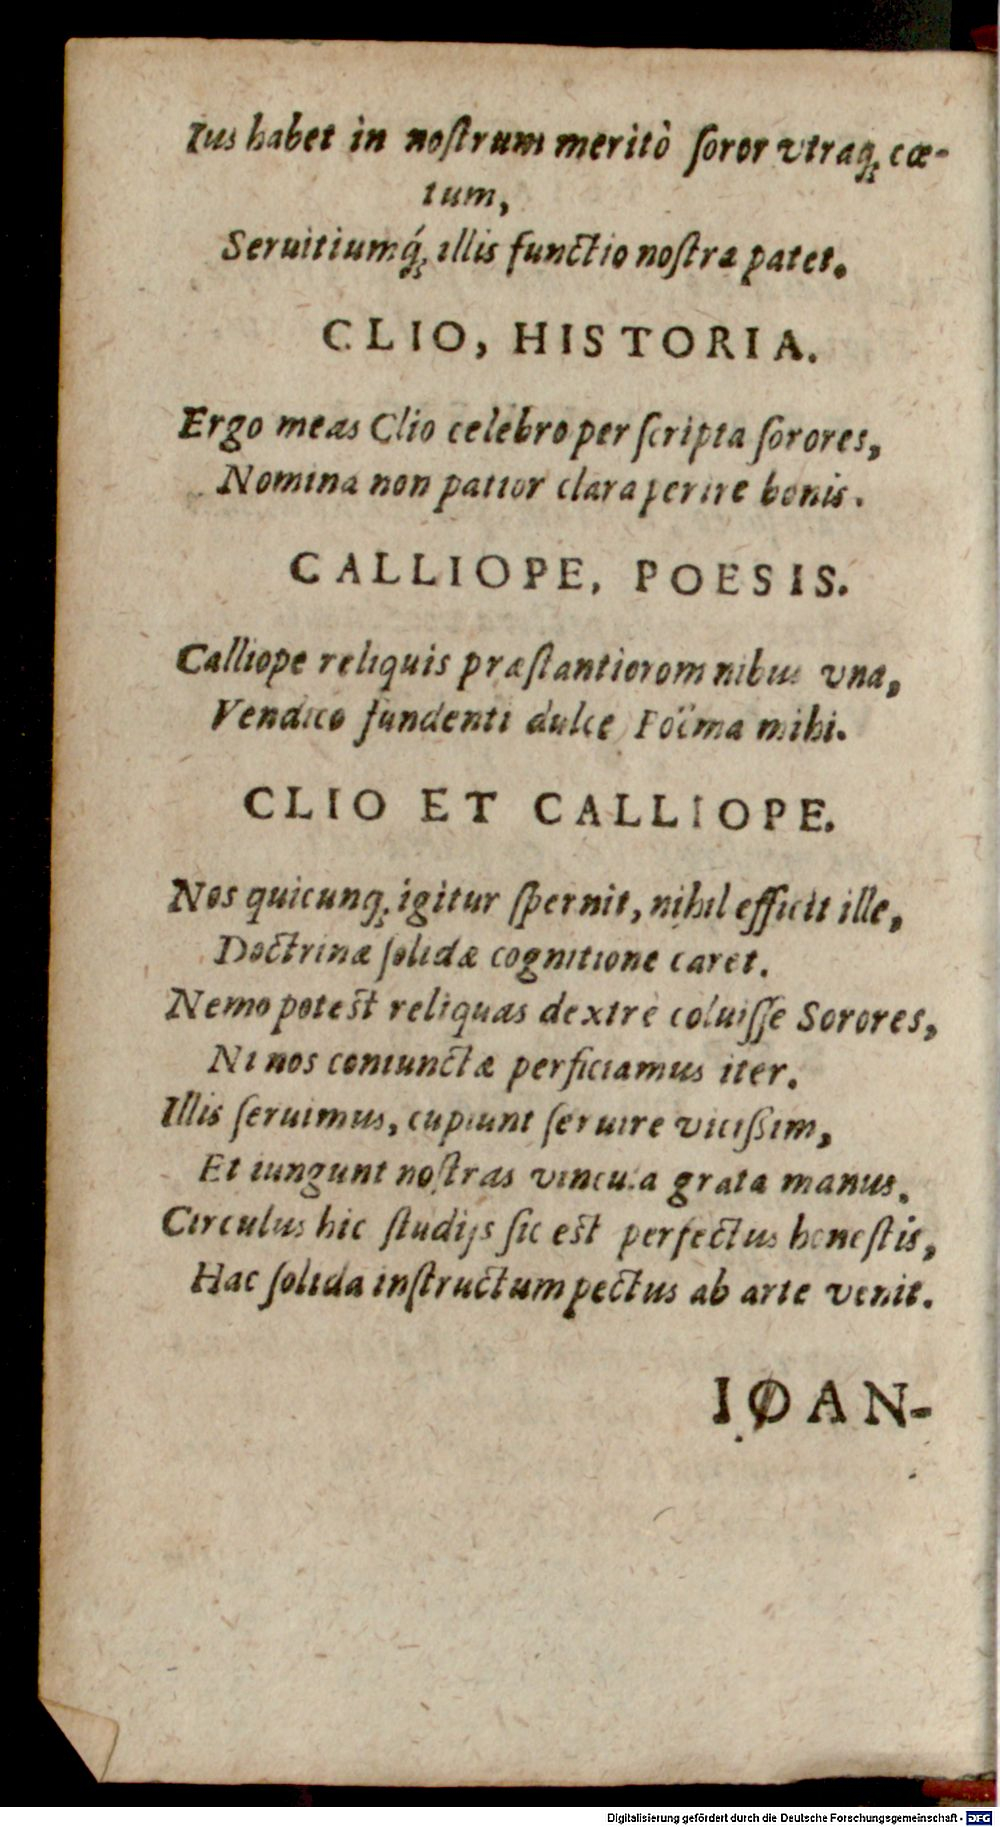 Ius habet in noſtrum meritò ſoror vtraq; cœ-
tum,
Seruitiumq́; illis functio noſtra patet.
CLIO, HISTORIA.
Ergo meas Clio celebro per ſcripta ſorores,
Nomina non patior clara perire bonis.
CALLIOPE, POESIS.
Calliope reliquis præſtantior omnibus vna,
Vendico fundenti dulce Poëma mihi.
CLIO ET CALLIOPE.
Nos quicunq; igitur ſpernit, nihil efficit ille,
Doctrinæ ſolidæ cognitione caret.
Nemo poteſt reliquas dextrè coluiſſe Sorores,
Ni nos coniunctæ perficiamus iter.
Illis ſeruimus, cupiunt ſeruire viciſſim,
Et iungunt noſtras vincula grata manus.
Circulus hic ſtudijs ſic eſt perfectus honeſtis,
Hac ſolida inſtructum pectus ab arte venit.
IOAN-
Digitalisierung gefördert durch die Deutsche Forschungsgemeinschaft - DFG